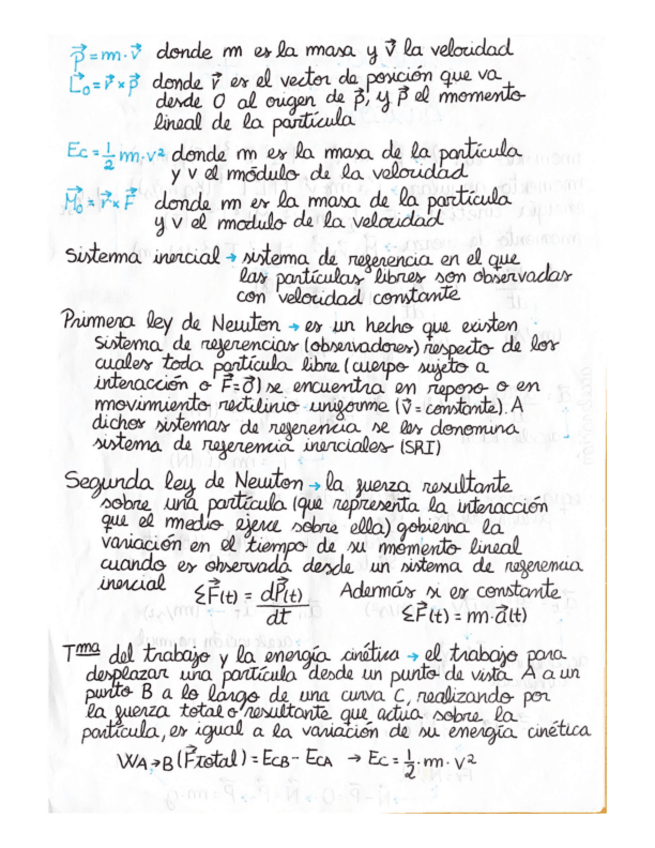 p⃗ = m · v⃗ donde m es la masa y v⃗ la velocidad
L⃗o = r⃗ × p⃗ donde r⃗ es el vector de posición que va
desde O al origen de p⃗, y p⃗ el momento
lineal de la partícula
Ec = 1/2 m · v² donde m es la masa de la partícula
y v el módulo de la velocidad
M⃗o = r⃗ × F⃗ donde m es la masa de la partícula
y v el modulo de la velocidad
Sistema inercial → sistema de referencia en el que
las partículas libres son observadas
con velocidad constante
Primera ley de Newton → es un hecho que existen
sistema de referencias (observadores) respecto de los
cuales toda partícula libre (cuerpo sujeto a
interacción o F⃗ = 0⃗) se encuentra en reposo o en
movimiento rectilinio uniforme (v⃗ = constante). A
dichos sistemas de referencia se les donomina
sistema de referencia inerciales (SRI)
Segunda ley de Newton → la fuerza resultante
sobre una partícula (que representa la interacción
que el medio ejerce sobre ella) gobierna la
variación en el tiempo de su momento lineal
cuando es observada desde un sistema de referencia
inercial ΣF⃗(t) = dP⃗(t)/dt Además si es constante
ΣF⃗(t) = m · a⃗(t)
Tma del trabajo y la energía cinética → el trabajo para
desplazar una partícula desde un punto de vista A a un
punto B a lo largo de una curva C, realizando por
la fuerza total o resultante que actúa sobre la
partícula, es igual a la variación de su energía cinética
WA→B (F⃗total) = EcB - EcA → Ec = 1/2 · m · v²